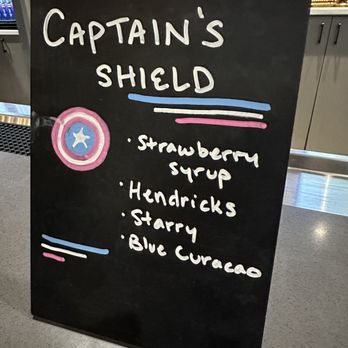 CAPTAIN'S
SHIELD
· Strawberry
syrup
· Hendricks
· Starry
· Blue Curacao